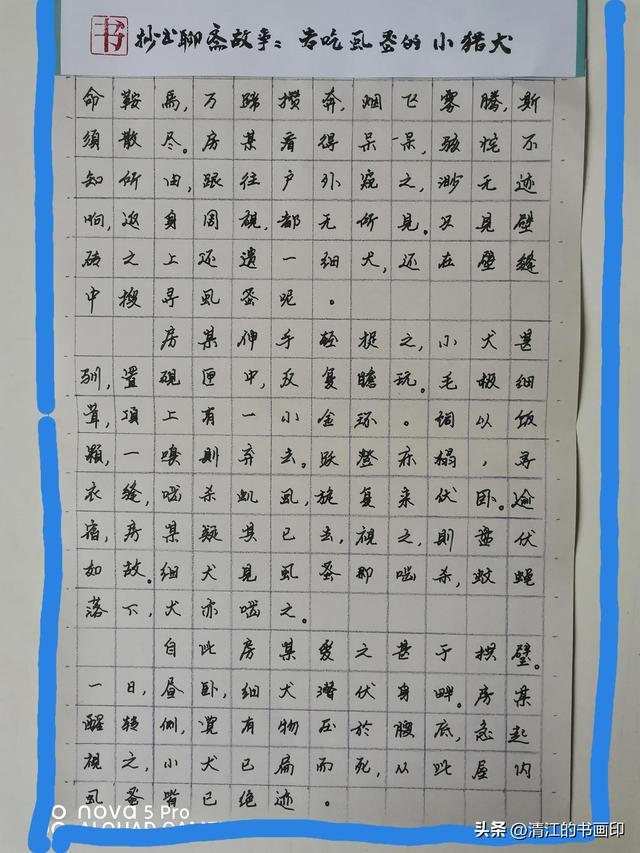 书 抄出聊斋故事：专吃虱蚤的小猎犬
命鞍马，万蹄攒奔，烟飞雾腾，斯
须散尽。房某看得呆呆，骇怪不
知所由，跟往户外窥之，渺无迹
响，返身周视，都无所见。只见壁
砖之上还遗一细犬，还在壁缝
中搜寻虱蚤呢。
房某伸手轻捉之，小犬甚
驯，置砚匣中，反复瞻玩。毛极细
茸，项上有一小金环。饲以饭
颗，一嗅则弃去。跃登床榻，寻
衣缝，啮杀虮虱，旋复来伏卧。逾
宿，房某疑其已去，视之，则盘伏
如故。细犬见虱蚤即啮杀，蚊蝇
落下，犬亦啮之。
自此房某爱之甚于拱璧。
一日，昼卧，细犬潜伏身畔。房某
醒转侧，觉有物压於腰底，急起
视之，小犬已扁而死，从此屋内
虱蚤皆已绝迹。
nova 5 Pro
AI QUAD CAMERA
头条 @清江的书画印